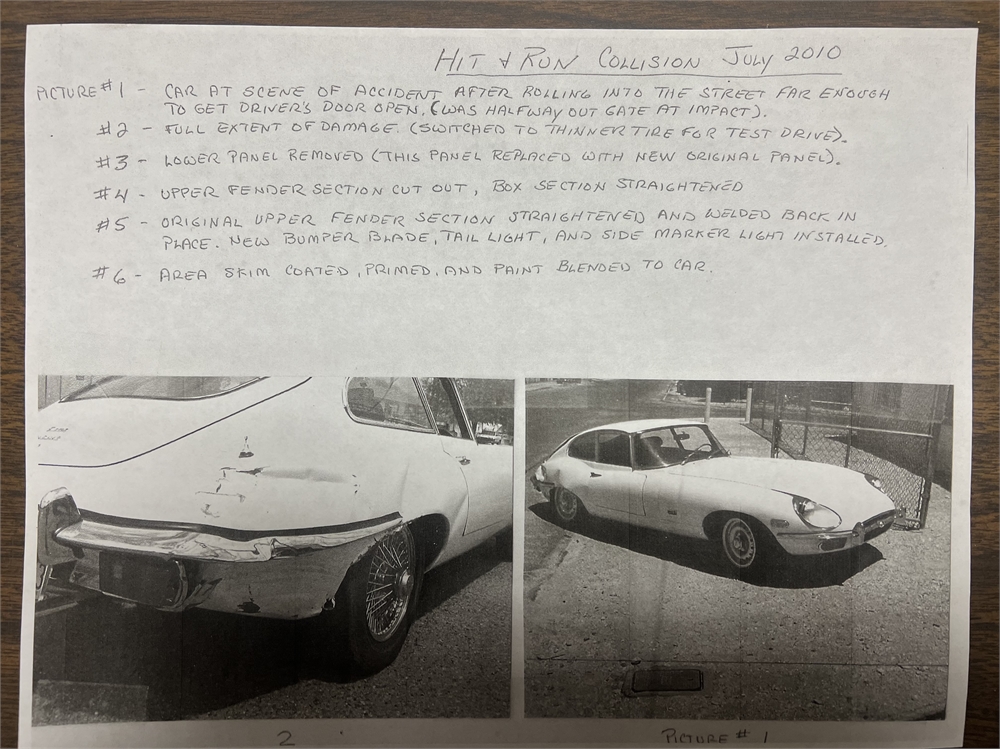 HIT & RUN COLLISION JULY 2010
PICTURE #1 - CAR AT SCENE OF ACCIDENT AFTER ROLLING INTO THE STREET FAR ENOUGH
TO GET DRIVER'S DOOR OPEN. (WAS HALFWAY OUT GATE AT IMPACT).
#2 - FULL EXTENT OF DAMAGE. (SWITCHED TO THINNER TIRE FOR TEST DRIVE).
#3 - LOWER PANEL REMOVED (THIS PANEL REPLACED WITH NEW ORIGINAL PANEL).
#4 - UPPER FENDER SECTION CUT OUT, BOX SECTION STRAIGHTENED
#5 - ORIGINAL UPPER FENDER SECTION STRAIGHTENED AND WELDED BACK IN
PLACE. NEW BUMPER BLADE, TAIL LIGHT, AND SIDE MARKER LIGHT INSTALLED.
#6 - AREA SKIM COATED, PRIMED, AND PAINT BLENDED TO CAR.
2
PICTURE #1